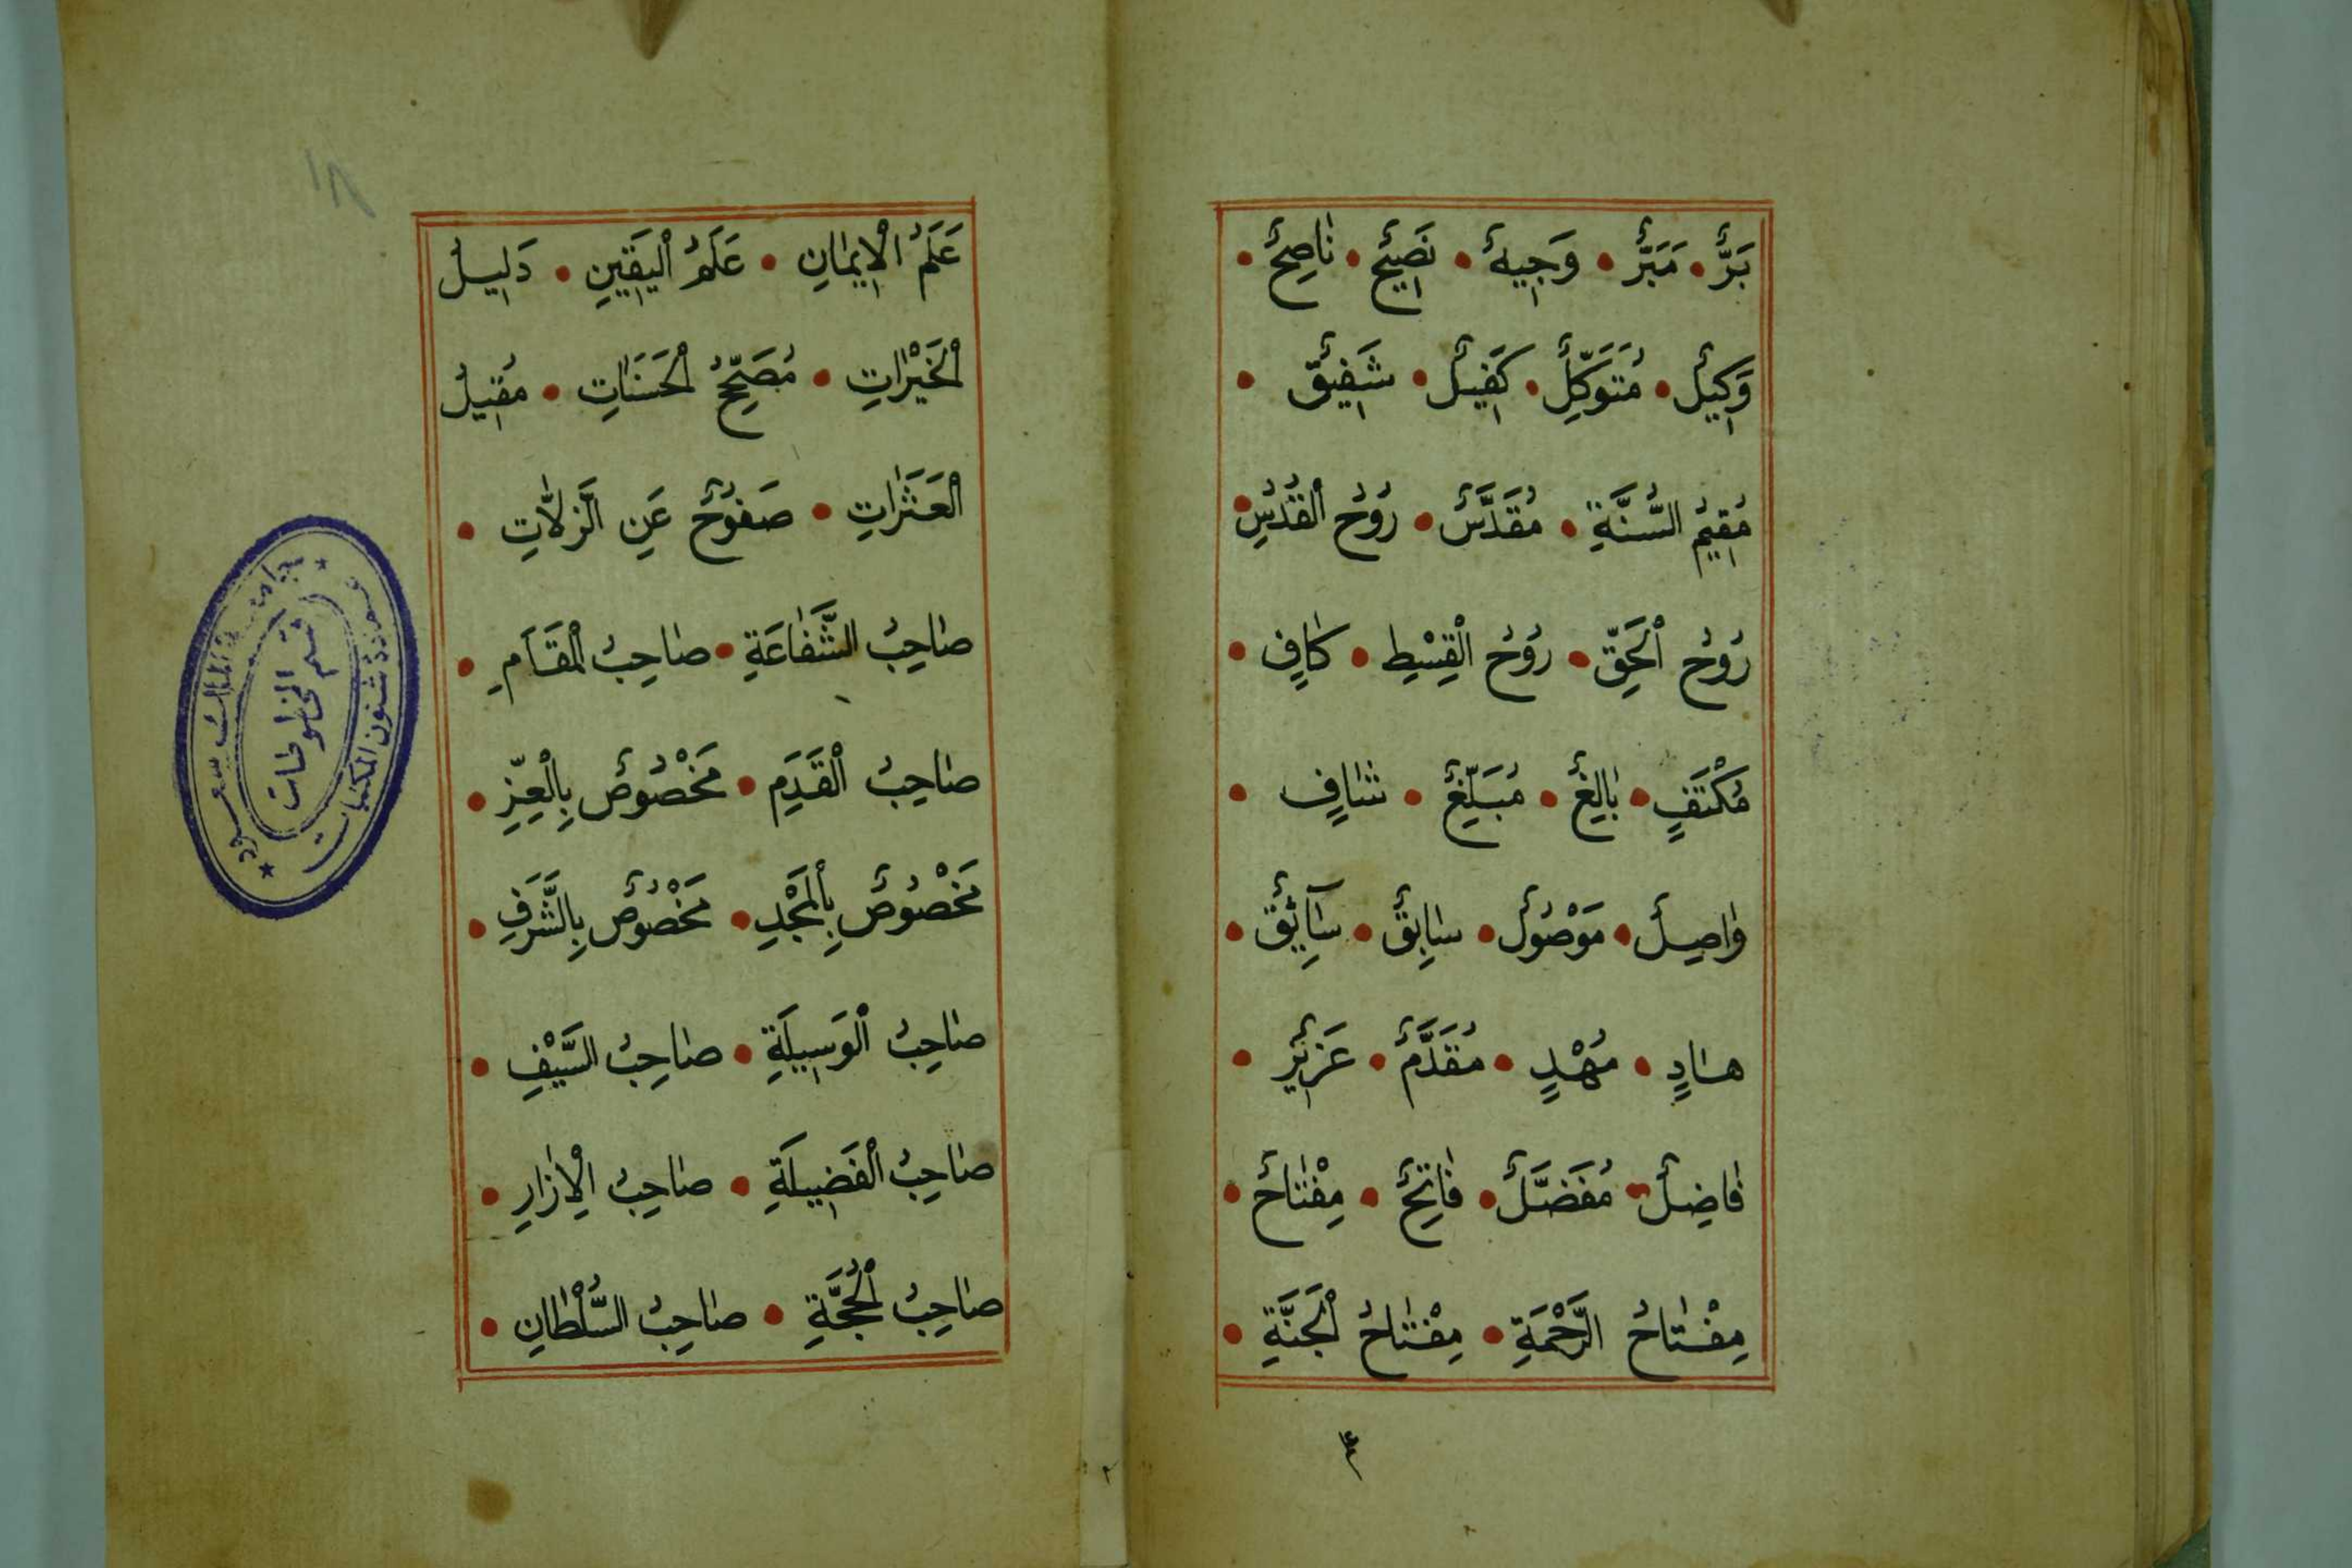 بَرٌّ • مَبَرٌّ • وَجِيهٌ • نَصِيحٌ • نَاصِحٌ •
وَكِيلٌ • مُتَوَكِّلٌ • كَفِيلٌ • شَفِيقٌ •
مُقِيمُ السُّنَّةِ • مُقَدَّسٌ • رُوحُ الْقُدُسِ •
رُوحُ الْحَقِّ • رُوحُ الْقِسْطِ • كَافٍ •
مُكْتَفٍ • بَالِغٌ • مُبَلِّغٌ • شَافٍ •
وَاصِلٌ • مَوْصُولٌ • سَابِقٌ • سَآئِقٌ •
هَادٍ • مُهْدٍ • مُقَدَّمٌ • عَزِيزٌ •
فَاضِلٌ • مُفَضَّلٌ • فَاتِحٌ • مِفْتَاحٌ •
مِفْتَاحُ الرَّحْمَةِ • مِفْتَاحُ الْجَنَّةِ •
عَلَمُ الْإِيمَانِ • عَلَمُ الْيَقِينِ • دَلِيلُ
الْخَيْرَاتِ • مُصَحِّحُ الْحَسَنَاتِ • مُقِيلُ
الْعَثَرَاتِ • صَفُوحٌ عَنِ الزَّلَّاتِ •
صَاحِبُ الشَّفَاعَةِ • صَاحِبُ الْمَقَامِ •
صَاحِبُ الْقَدَمِ • مَخْصُوصٌ بِالْعِزِّ •
مَخْصُوصٌ بِالْمَجْدِ • مَخْصُوصٌ بِالشَّرَفِ •
صَاحِبُ الْوَسِيلَةِ • صَاحِبُ السَّيْفِ •
صَاحِبُ الْفَضِيلَةِ • صَاحِبُ الْإِزَارِ •
صَاحِبُ الْحُجَّةِ • صَاحِبُ السُّلْطَانِ •
١٨
جامعة الملك سعود
قسم المخطوطات
عمادة شئون المكتبات